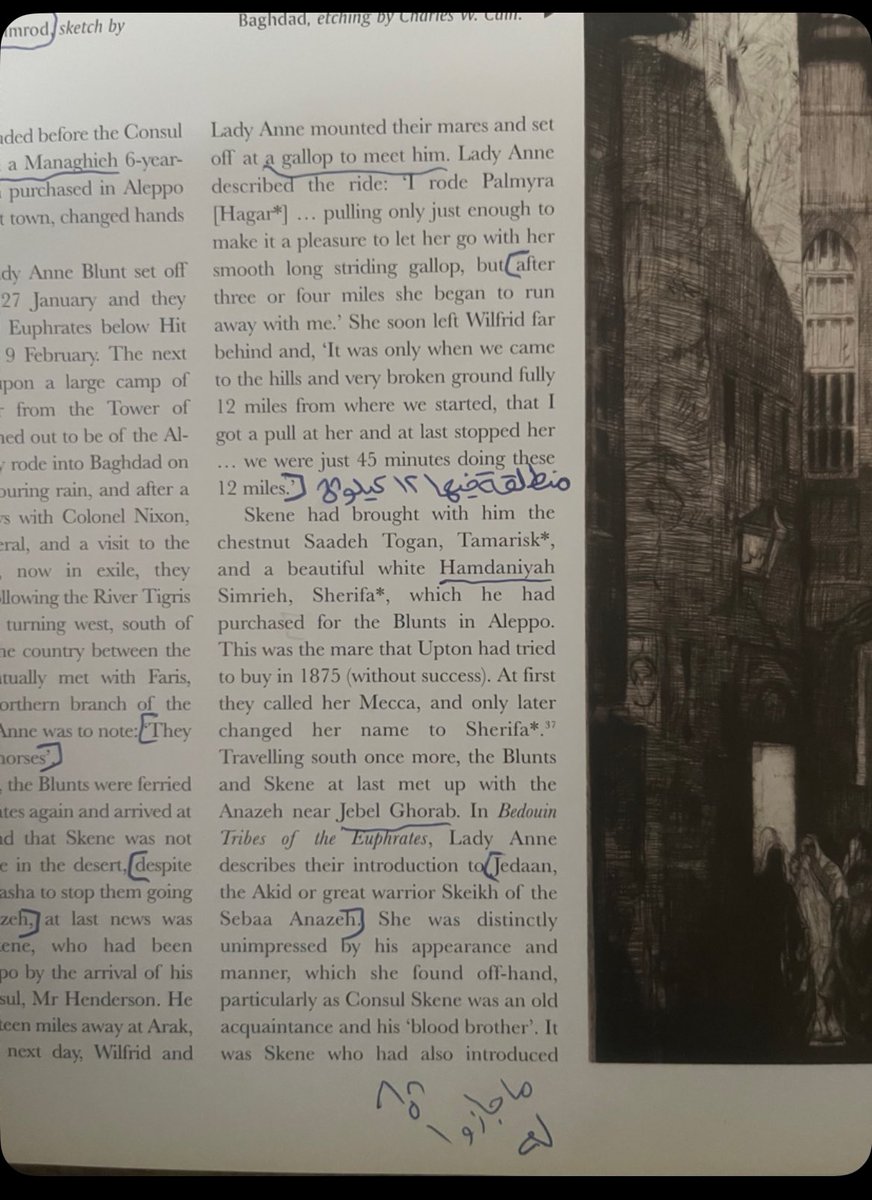 mrod, sketch by
Baghdad, etching by Charles W. Cain.
ded before the Consul
a Managhieh 6-year-
purchased in Aleppo
t town, changed hands
dy Anne Blunt set off
27 January and they
Euphrates below Hit
9 February. The next
upon a large camp of
r from the Tower of
ned out to be of the Al-
y rode into Baghdad on
ouring rain, and after a
s with Colonel Nixon,
eral, and a visit to the
, now in exile, they
llowing the River Tigris
turning west, south of
he country between the
tually met with Faris,
orthern branch of the
Anne was to note: 'They
horses'.
, the Blunts were ferried
ates again and arrived at
nd that Skene was not
e in the desert, despite
asha to stop them going
zeh, at last news was
ene, who had been
po by the arrival of his
sul, Mr Henderson. He
teen miles away at Arak,
next day, Wilfrid and
Lady Anne mounted their mares and set
off at a gallop to meet him. Lady Anne
described the ride: 'I rode Palmyra
[Hagar*] … pulling only just enough to
make it a pleasure to let her go with her
smooth long striding gallop, but after
three or four miles she began to run
away with me.' She soon left Wilfrid far
behind and, 'It was only when we came
to the hills and very broken ground fully
12 miles from where we started, that I
got a pull at her and at last stopped her
… we were just 45 minutes doing these
12 miles.' منطلقة فيها ١٢ كيلو
Skene had brought with him the
chestnut Saadeh Togan, Tamarisk*,
and a beautiful white Hamdaniyah
Simrieh, Sherifa*, which he had
purchased for the Blunts in Aleppo.
This was the mare that Upton had tried
to buy in 1875 (without success). At first
they called her Mecca, and only later
changed her name to Sherifa*.³⁷
Travelling south once more, the Blunts
and Skene at last met up with the
Anazeh near Jebel Ghorab. In Bedouin
Tribes of the Euphrates, Lady Anne
describes their introduction to Jedaan,
the Akid or great warrior Skeikh of the
Sebaa Anazeh. She was distinctly
unimpressed by his appearance and
manner, which she found off-hand,
particularly as Consul Skene was an old
acquaintance and his 'blood brother'. It
was Skene who had also introduced
ما جازوا